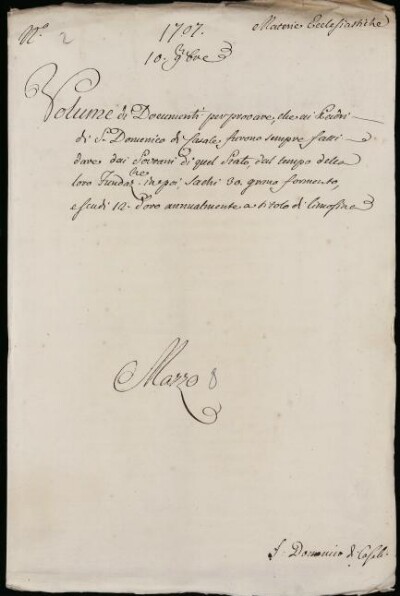 N.º 2
1707.
Materie Ecclesiastiche
10. 9bre
Volume di Documenti per provare, che ai Padri
di S. Domenico di Casale furono sempre fatti
dare dai Sovrani di quel Stato, dal tempo della
loro Fundaz.ne in poi Sachi 30. grano formento,
e scudi 12. d'oro annualmente a titolo di limosina
Mazzo 8
S. Domenico di Casale